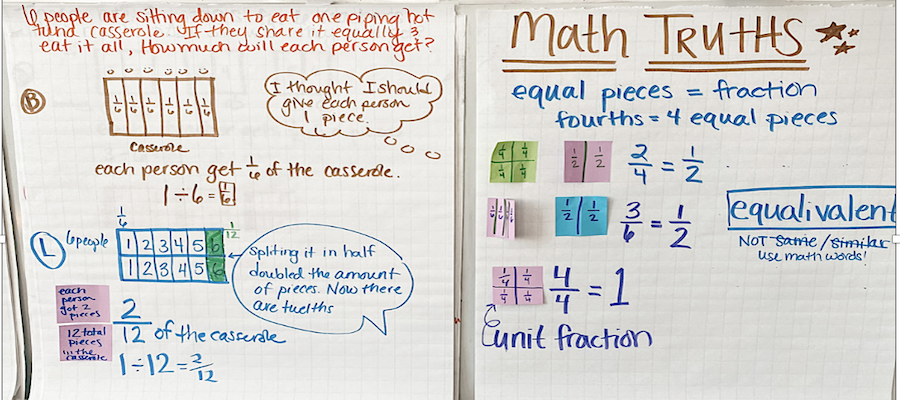 6 people are sitting down to eat one piping hot
tuna casserole. If they share it equally &
eat it all, How much will each person get?
B
1/6 1/6 1/6 1/6 1/6 1/6
Casserole
I thought I should
give each person
1 piece.
each person get 1/6 of the casserole.
1÷6=1/6
L
6 people
1/6
1/12
1 2 3 4 5 6
1 2 3 4 5 6
Spliting it in half
doubled the amount
of pieces. Now there
are twelths
each
person
got 2
pieces
12 total
pieces
in the
casserole
2/12 of the casserole
1÷12=2/12
Math TRUTHS
equal pieces = fraction
fourths = 4 equal pieces
1/4 1/4
1/4 1/4
1/2 1/2
2/4 = 1/2
1/2 1/2
3/6 = 1/2
equalivalent
NOT same/similar
use math words!
1/4 1/4
1/4 1/4
4/4 = 1
unit fraction